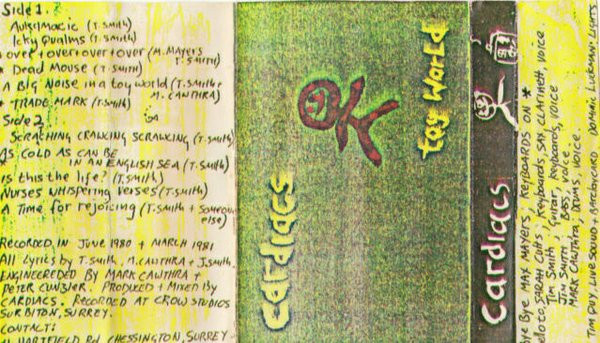 Side 1.
Aukamacic (T. Smith)
Icky Qualms (T. Smith)
over + over + over + over (M. Mayers T. Smith)
Dead Mouse (T. Smith)
A Big Noise in a toy world (T. Smith + M. Cawthra)
* TRADE MARK (T. Smith)
Side 2
SCRATCHING CRAWLING SCRAWLING (T. Smith)
AS COLD AS CAN BE
IN AN ENGLISH SEA (T. Smith)
is this the life? (T. Smith)
Nurses whispering verses (T. Smith)
A Time for rejoicing (T. Smith + Someone else)
RECORDED IN June 1980 + MARCH 1981
All Lyrics by T. Smith, M. Cawthra + J. Smith.
ENGINEEREDED BY MARK CAWTHRA +
PETER PRODUCED + MIXED BY
CARDIACS. RECORDED AT CROW STUDIOS
SURBITON, SURREY.
CONTACT:
HARTFIELD Rd CHESSINGTON, SURREY
cardiacs
toy world
Cardiacs
Bye Bye MAX MAYERS, KEYBOARDS ON *
SARAH Cutts, Keyboards, SAX, CLARINETT, VOICE
Tim Smith, Guitar, Keyboards, VOICE
Jim Smith, BASS, VOICE
MARK CAWTHRA, DRUMS, VOICE.
TIM Duy, LIVE SOUND + BARCLYCARD DOMINIC LUCKMAN: LIGHTS